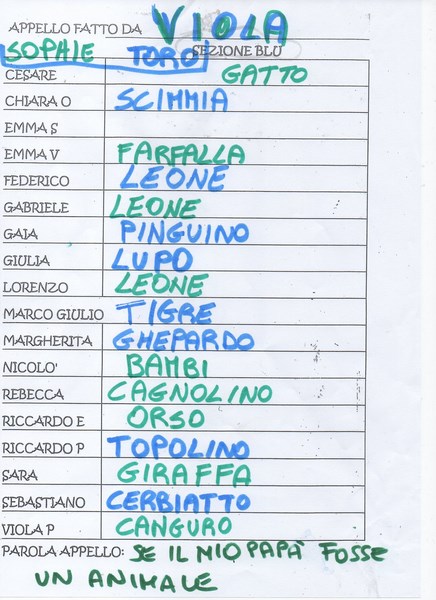 APPELLO FATTO DA VIOLA
SOPHIE TORO SEZIONE BLU
CESARE GATTO
CHIARA O SCIMMIA
EMMA S
EMMA V FARFALLA
FEDERICO LEONE
GABRIELE LEONE
GAIA PINGUINO
GIULIA LUPO
LORENZO LEONE
MARCO GIULIO TIGRE
MARGHERITA GHEPARDO
NICOLO' BAMBI
REBECCA CAGNOLINO
RICCARDO E ORSO
RICCARDO P TOPOLINO
SARA GIRAFFA
SEBASTIANO CERBIATTO
VIOLA P CANGURO
PAROLA APPELLO: SE IL MIO PAPA' FOSSE
UN ANIMALE